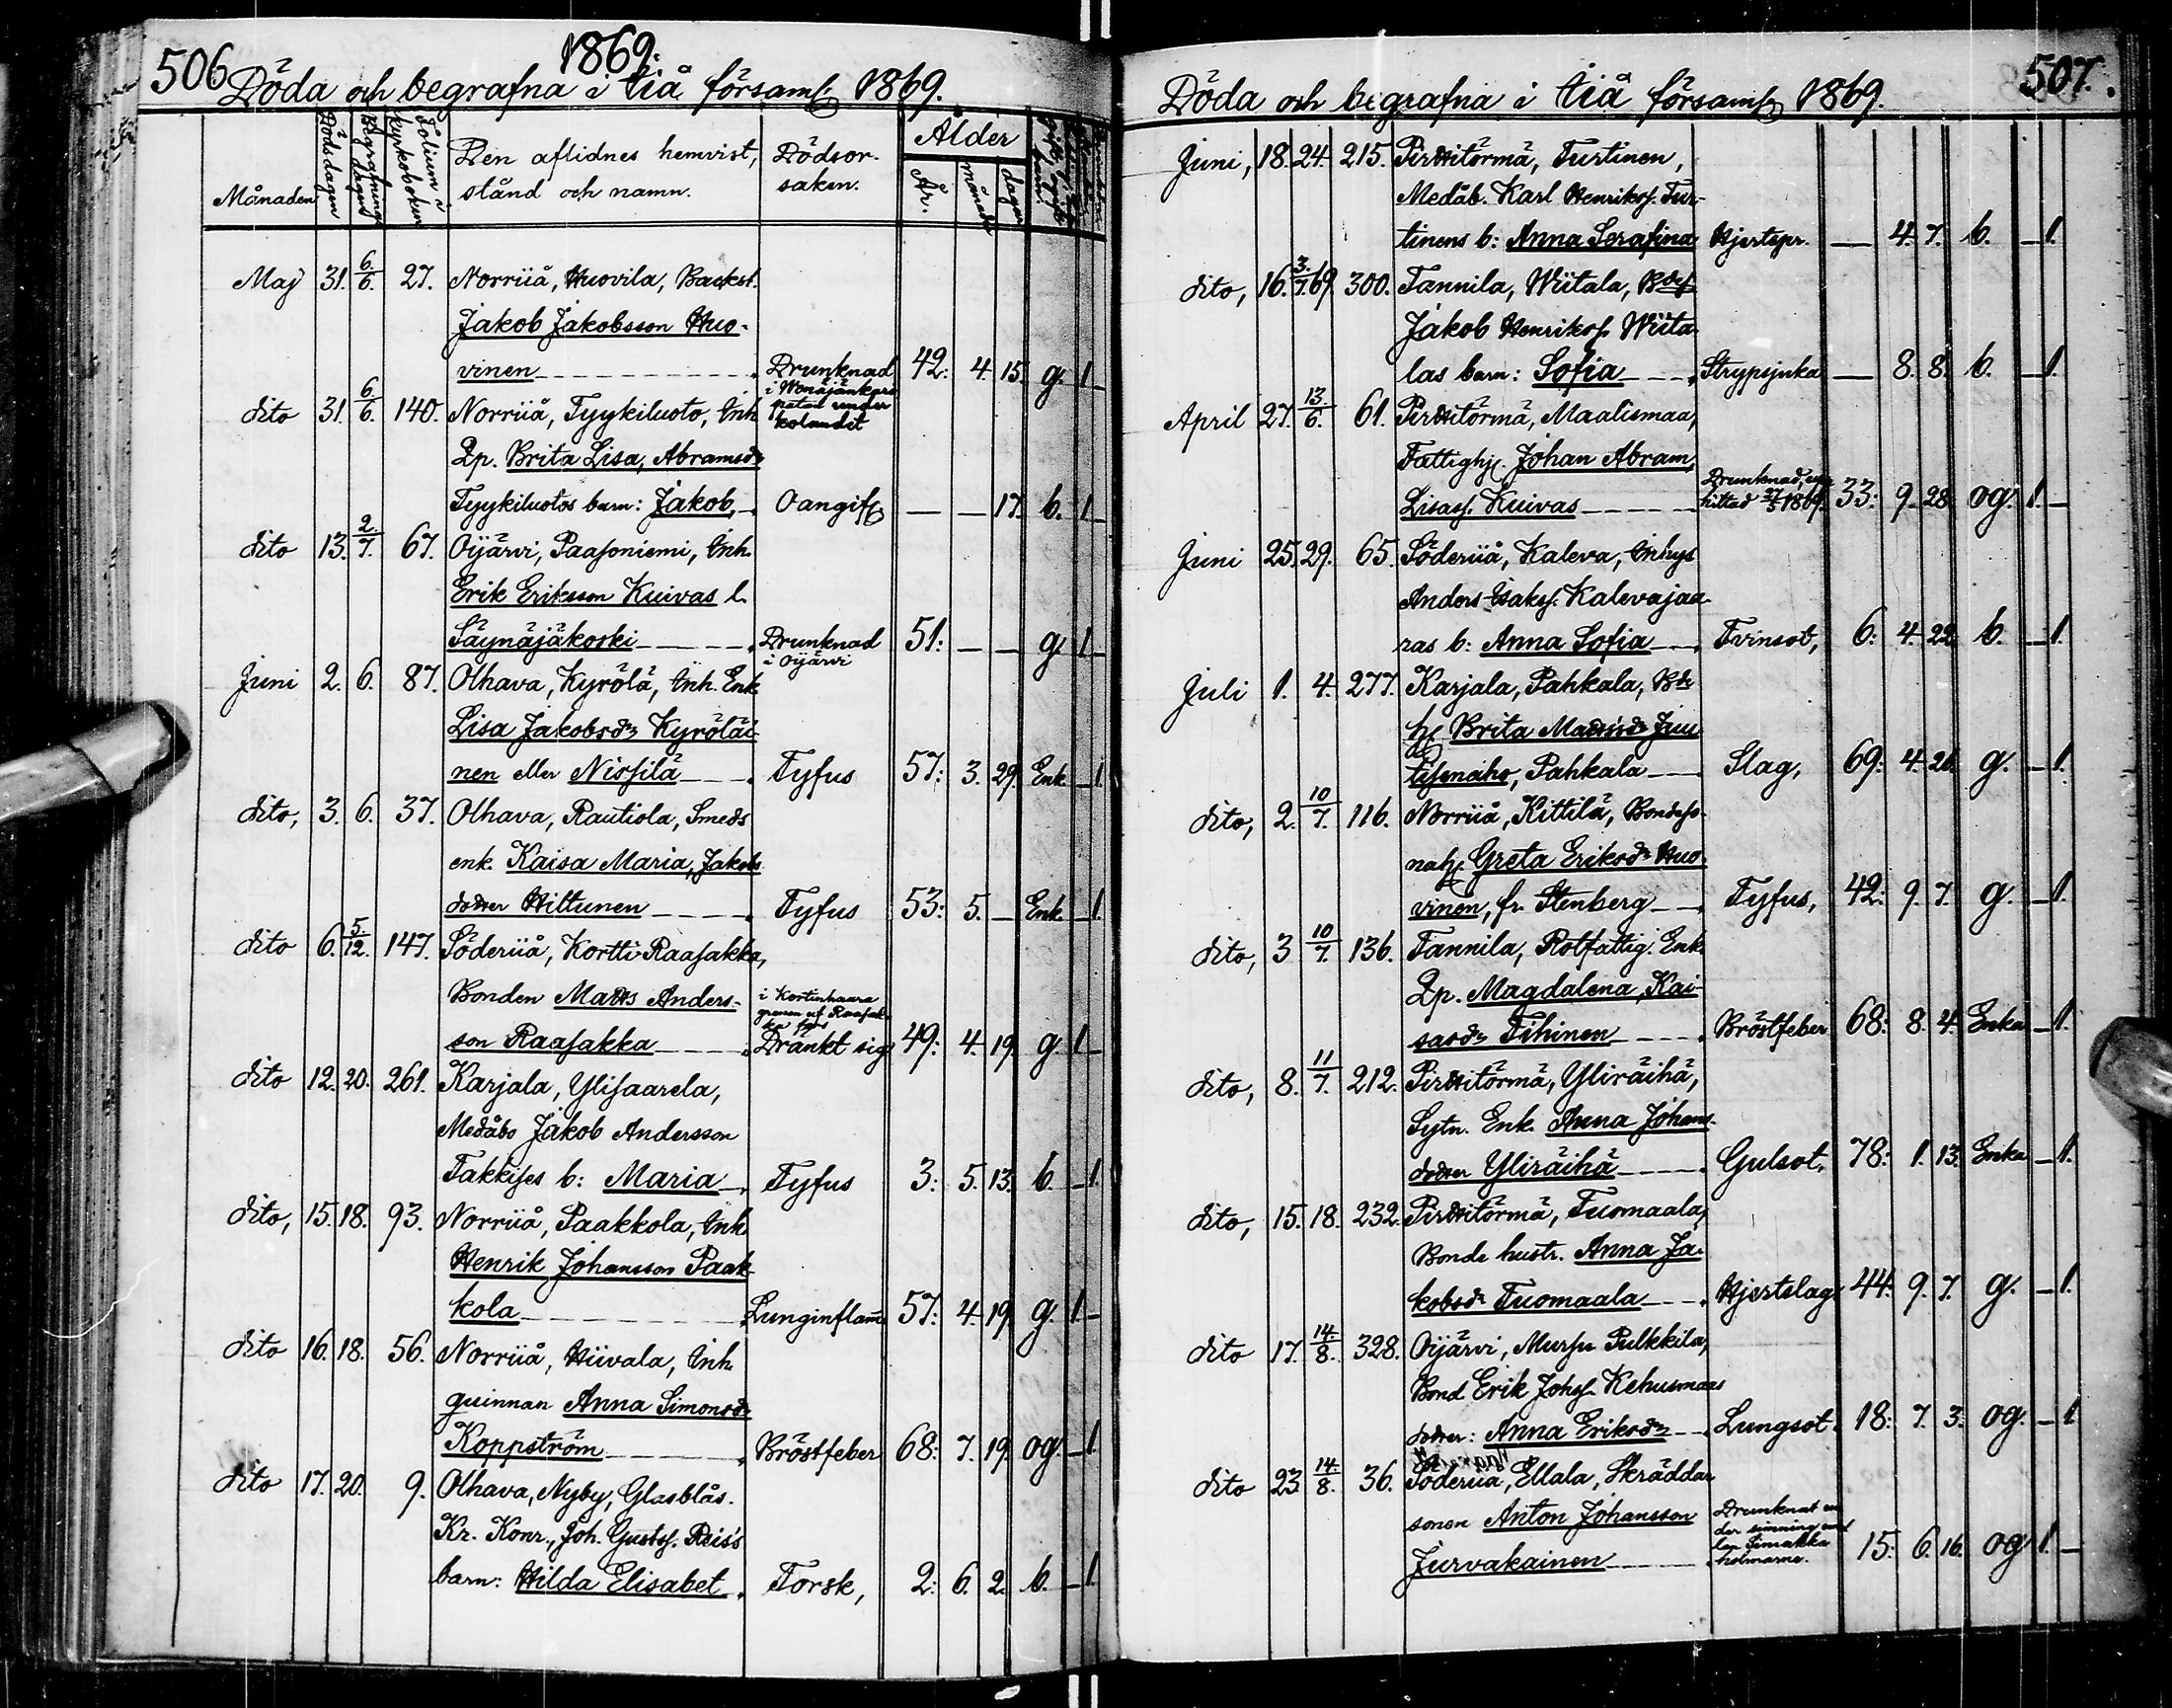 506
1869.
Döda och begrafna i Iiå församl. 1869.
Månaden
Dödsdagen
Begrafnings dagen
Folium i kyrkoboken
Den aflidnes hemvist, stånd och namn.
Dödsorsaken.
Ålder
År.
månader
dagar
Maj 31. 6./6. 27. Norriiå, Huovila, Backst.
Jakob Jakobsson Huo-
vinen Drunknad 42: 4. 15. g. 1. –
under
dito 31. 6./6. 140. Norriiå, Tyykiluoto, Inh.
Qp. Brita Lisa, Abramsdr
Tyykiluotos barn: Jakob, Oangifv. — — 17. b. 1. –
dito 13. 2./7. 67. Oijärvi, Paasoniemi, Inh.
Erik Eriksson Kuivas l.
Säynäjäkoski Drunknad 51: – – g. 1. –
i Oijärvi
Juni 2. 6. 87. Olhava, Kyrölä, Inh. Enk.
Lisa Jakobsdr Kyröläi-
nen eller Nissilä Tyfus 57: 3. 29. Enk. – 1.
dito, 3. 6. 37. Olhava, Rautiola, Smeds
enk. Kaisa Maria, Jakobs
dotter Hiltunen Tyfus 53: 5. – Enk. – 1.
dito 6. 5./12. 147. Söderiiå, Kortti Raasakka,
Bonden Matts Anders-
i Kortinhaara
grenen af Raasak-
ka fors
son Raasakka Dränkt sig 49: 4. 19. g. 1. –
dito 12. 20. 261. Karjala, Ylisaarela,
Medåbo Jakob Andersson
Takkises b: Maria Tyfus 3: 5. 13. b. – 1.
dito, 15. 18. 93. Norriiå, Paakkola, Inh.
Henrik Johansson Paak-
kola Lunginflam. 57: 4. 19. g. 1. –
dito 16. 18. 56. Norriiå, Hiivala, Inh.
quinnan Anna Simonsdr
Koppström Bröstfeber 68: 7. 19. og. – 1.
dito 17. 20. 9. Olhava, Nyby, Glasblås.
Kr. Konr., Joh. Gustafs. Reis's
barn: Hilda Elisabet Torsk, 2: 6. 2. b. – 1.
507.
Döda och begrafna i Iiå församl. 1869.
Juni, 18. 24. 215. Pirttitörmä, Turtinen,
Medåb. Karl Henrikss. Tur-
tinens b: Anna Serafina Hjertspr. — 4. 7. b. – 1.
dito, 16. 3./7. 69. 300. Tannila, Wiitala,
Jakob Henrikss. Wiita-
las barn: Sofia Strypsjuka — 8. 8. b. – 1.
April 27. 13./6. 61. Pirttitörmä, Maalismaa,
Fattighj. Johan Abram,
Drunknad,
Lisass. Kuivas hittad 1869. 33: 9. 28. og. 1. –
Juni 25. 29. 65. Söderiiå, Kaleva, Inhys
Anders Isakss. Kalevajaa-
ras b: Anna Sofia Tvinsot, 6: 4. 22. b. – 1.
Juli 1. 4. 277. Karjala, Pahkala, Bde
h. Brita Mattsdr
Pahkala Slag, 69: 4. g. – 1.
dito, 2. 10/7. 116. Norriiå, Kittilä, Bondeso-
nah. Greta Eriksdr Huo-
vinen, fr. Stenberg Tyfus, 42: 9. 7. g. – 1.
dito, 3 10/7. 136. Tannila, Rotfattig. Enk.
Qp. Magdalena, Kai-
sasdr Tihinen Bröstfeber 68: 8. 4. Enka – 1.
dito, 8. 11/7. 212. Pirttitörmä, Yliräihä,
Sytn. Enk. Anna Johans-
dotter Yliräihä Gulsot, 78: 1. 13. Enka – 1.
dito, 15. 18. 232. Pirttitörmä, Tuomaala,
Bonde hustr. Anna Ja-
kobsdr Tuomaala Hjertslag 44: 9. 7. g. – 1.
dito 17. 14./8. 328. Oijärvi, Mursu Pulkkila,
Bond. Erik Johss. Kehusmaas
dotter: Anna Eriksdr Lungsot. 18: 7. 3. og. – 1
dito 23 14./8. 36. Söderiiå, Ellala, Skräddar
sonen Anton Johansson
Drunknat un-
der simning
Jurvakainen holmarne. 15: 6. 16. og 1. –